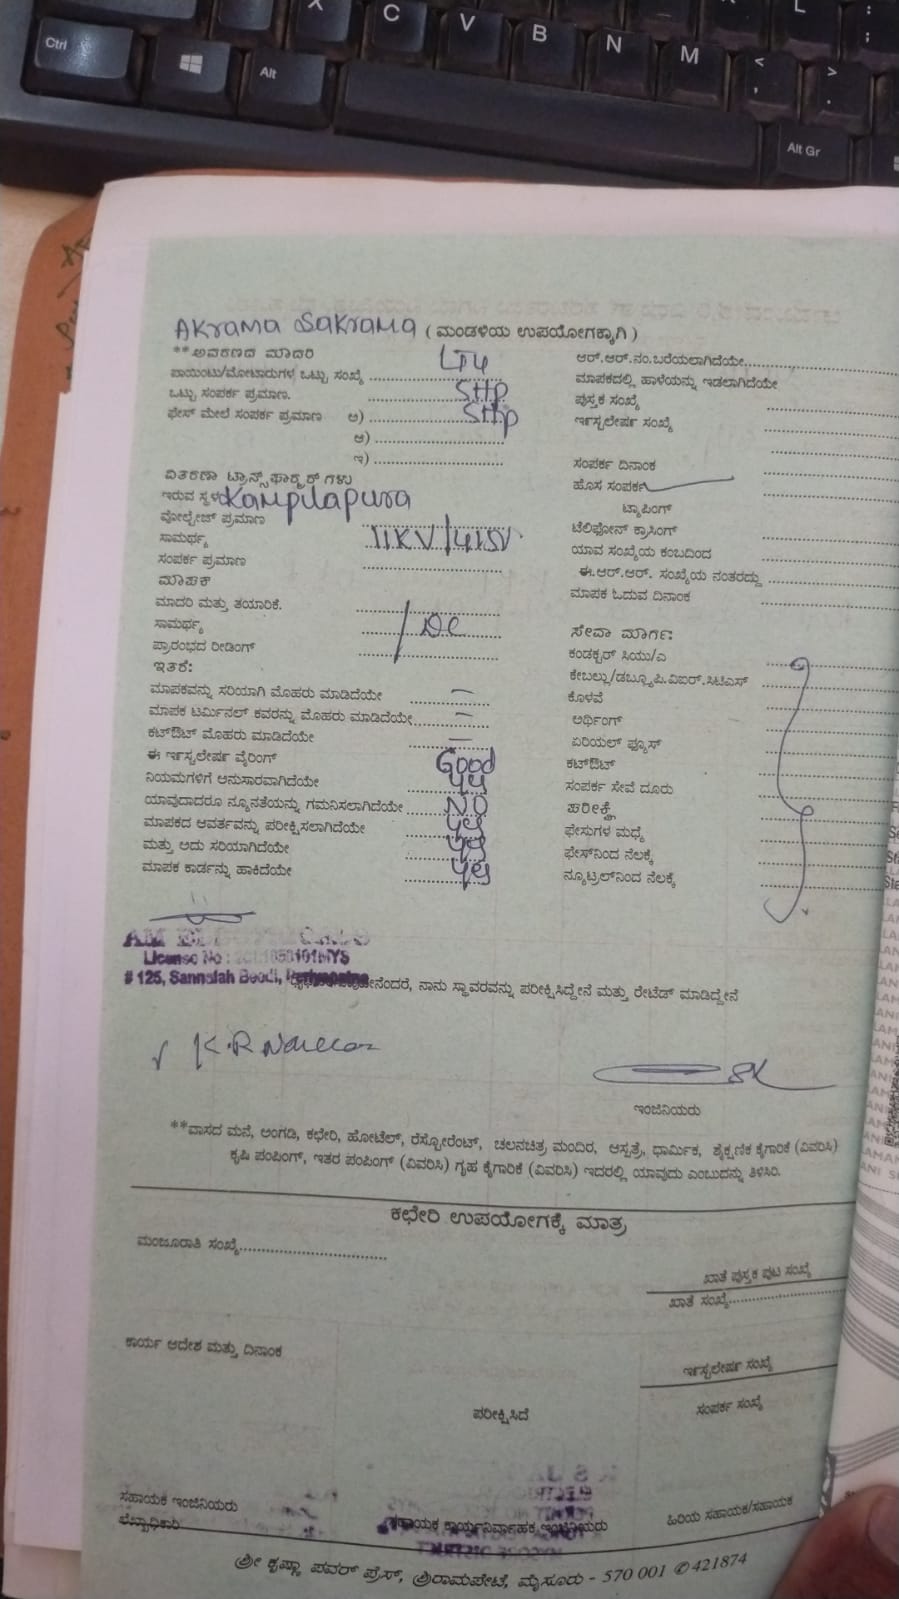 AKrama Sakrama ( ಮಂಡಳಿಯ ಉಪಯೋಗಕ್ಕಾಗಿ )
**ಆವರಣದ ಮಾದರಿ LT4
ಪಾಯಿಂಟು/ಮೋಟಾರುಗಳ ಒಟ್ಟು ಸಂಖ್ಯೆ
ಒಟ್ಟು ಸಂಪರ್ಕ ಪ್ರಮಾಣ. 5HP
ಫೇಸ್ ಮೇಲೆ ಸಂಪರ್ಕ ಪ್ರಮಾಣ ಅ) 5Hp
ಆ)
ಇ)
ವಿತರಣಾ ಟ್ರಾನ್ಸ್‌ಫಾರ್ಮರ್ ಗಳು
ಇರುವ ಸ್ಥಳ Kampilapura
ವೋಲ್ಟೇಜ್ ಪ್ರಮಾಣ
ಸಾಮರ್ಥ್ಯ 11KV/415V
ಸಂಪರ್ಕ ಪ್ರಮಾಣ
ಮಾಪಕ
ಮಾದರಿ ಮತ್ತು ತಯಾರಿಕೆ.
ಸಾಮರ್ಥ್ಯ
ಪ್ರಾರಂಭದ ರೀಡಿಂಗ್
ಇತರೆ:
ಮಾಪಕವನ್ನು ಸರಿಯಾಗಿ ಮೊಹರು ಮಾಡಿದೆಯೇ
ಮಾಪಕ ಟರ್ಮಿನಲ್ ಕವರನ್ನು ಮೊಹರು ಮಾಡಿದೆಯೇ
ಕಟ್‌ಔಟ್ ಮೊಹರು ಮಾಡಿದೆಯೇ
ಈ ಇನ್‌ಸ್ಟಲೇಷನ್ ವೈರಿಂಗ್ Good
ನಿಯಮಗಳಿಗೆ ಅನುಸಾರವಾಗಿದೆಯೇ yes
ಯಾವುದಾದರೂ ನ್ಯೂನತೆಯನ್ನು ಗಮನಿಸಲಾಗಿದೆಯೇ NO
ಮಾಪಕದ ಆವರ್ತವನ್ನು ಪರೀಕ್ಷಿಸಲಾಗಿದೆಯೇ yes
ಮತ್ತು ಅದು ಸರಿಯಾಗಿದೆಯೇ yes
ಮಾಪಕ ಕಾರ್ಡನ್ನು ಹಾಕಿದೆಯೇ yes
ಆರ್.ಆರ್.ನಂ.ಬರೆಯಲಾಗಿದೆಯೇ
ಮಾಪಕದಲ್ಲಿ ಹಾಳೆಯನ್ನು ಇಡಲಾಗಿದೆಯೇ
ಪುಸ್ತಕ ಸಂಖ್ಯೆ
ಇನ್‌ಸ್ಟಲೇಷನ್ ಸಂಖ್ಯೆ
ಸಂಪರ್ಕ ದಿನಾಂಕ
ಹೊಸ ಸಂಪರ್ಕ
ಟ್ಯಾಪಿಂಗ್
ಟೆಲಿಫೋನ್ ಕ್ರಾಸಿಂಗ್
ಯಾವ ಸಂಖ್ಯೆಯ ಕಂಬದಿಂದ
ಈ.ಆರ್.ಆರ್. ಸಂಖ್ಯೆಯ ನಂತರದ್ದು
ಮಾಪಕ ಓದುವ ದಿನಾಂಕ
ಸೇವಾ ಮಾರ್ಗ:
ಕಂಡಕ್ಟರ್ ಸಿಯು/ಎ
ಕೇಬಲ್ಲು/ಡಬ್ಲ್ಯೂ.ಪಿ.ವಿಐಆರ್.ಸಿಟಿಎಸ್
ಕೊಳವೆ
ಅರ್ಥಿಂಗ್
ಏರಿಯಲ್ ಫ್ಯೂಸ್
ಕಟ್‌ಔಟ್
ಸಂಪರ್ಕ ಸೇವೆ ದೂರು
ಪರೀಕ್ಷೆ
ಫೇಸುಗಳ ಮಧ್ಯೆ
ಫೇಸ್‌ನಿಂದ ನೆಲಕ್ಕೆ
ನ್ಯೂಟ್ರಲ್‌ನಿಂದ ನೆಲಕ್ಕೆ
AM
License No :
# 125, Sannaiah Beedi,
ನಾನು ಸ್ಥಾವರವನ್ನು ಪರೀಕ್ಷಿಸಿದ್ದೇನೆ ಮತ್ತು ರೇಟೆಡ್ ಮಾಡಿದ್ದೇನೆ
ಇಂಜಿನಿಯರು
**ವಾಸದ ಮನೆ, ಅಂಗಡಿ, ಕಛೇರಿ, ಹೋಟೆಲ್, ರೆಸ್ಟೋರೆಂಟ್, ಚಲನಚಿತ್ರ ಮಂದಿರ, ಆಸ್ಪತ್ರೆ, ಧಾರ್ಮಿಕ, ಶೈಕ್ಷಣಿಕ ಕೈಗಾರಿಕೆ (ವಿವರಿಸಿ)
ಕೃಷಿ ಪಂಪಿಂಗ್, ಇತರ ಪಂಪಿಂಗ್ (ವಿವರಿಸಿ) ಗೃಹ ಕೈಗಾರಿಕೆ (ವಿವರಿಸಿ) ಇದರಲ್ಲಿ ಯಾವುದು ಎಂಬುದನ್ನು ತಿಳಿಸಿರಿ.
ಕಛೇರಿ ಉಪಯೋಗಕ್ಕೆ ಮಾತ್ರ
ಮಂಜೂರಾತಿ ಸಂಖ್ಯೆ
ಖಾತೆ ಪುಸ್ತಕ ಪುಟ ಸಂಖ್ಯೆ
ಖಾತೆ ಸಂಖ್ಯೆ
ಕಾರ್ಯ ಆದೇಶ ಮತ್ತು ದಿನಾಂಕ
ಇನ್‌ಸ್ಟಲೇಷನ್ ಸಂಖ್ಯೆ
ಪರೀಕ್ಷಿಸಿದೆ
ಸಂಪರ್ಕ ಸಂಖ್ಯೆ
ಸಹಾಯಕ ಇಂಜಿನಿಯರು
ಲೆಖ್ಖಾಧಿಕಾರಿ
ಸಹಾಯಕ ಕಾರ್ಯನಿರ್ವಾಹಕ ಇಂಜಿನಿಯರು
ಹಿರಿಯ ಸಹಾಯಕ/ಸಹಾಯಕ
ಶ್ರೀ ಕೃಷ್ಣಾ ಪವರ್ ಪ್ರೆಸ್, ಶ್ರೀರಾಮಪೇಟೆ, ಮೈಸೂರು - 570 001 ✆ 421874
Ctrl
Alt
X
C
V
B
N
M
L
Alt Gr